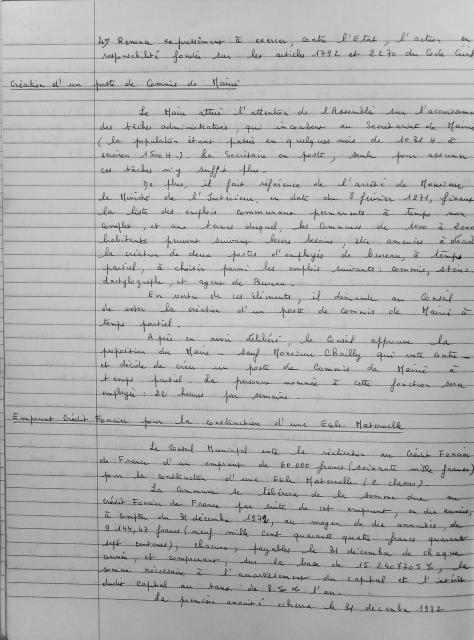 4°) Renonce expressément à exercer, contre l'Etat, l'action en
responsabilité fondée sur les articles 1792 et 2270 du Code Civil
Création d'un poste de Commis de Mairie
Le Maire attire l'attention de l'Assemblée sur l'accroissement
des tâches administratives, qui incombent au Secrétariat de Mairie
(la population étant passée en quelques mois de 1031 H. à
environ 1500 H.). La Secrétaire en poste, seule pour assurer
ces tâches n'y suffit plus.
De plus, il fait référence de l'arrêté de Monsieur
le Ministre de l'Intérieur, en date du 8 février 1971, fixant
la liste des emplois communaux permanents à temps non
complet, et aux termes duquel, les Communes de 1000 à 2000
habitants peuvent suivant leurs besoins, être amenées à décider
la création de deux postes d'employés de bureau, à temps
partiel, à choisir parmi les emplois suivants : commis, sténo-
dactylographe, et agent de Bureau.
En vertu de ces éléments, il demande au Conseil
de voter la création d'un poste de commis de Mairie à
temps partiel.
Après en avoir délibéré, le Conseil approuve la
proposition du Maire - sauf Monsieur Chailly qui vote contre -
et décide de créer un poste de Commis de Mairie à
temps partiel. La personne nommée à cette fonction sera
employée : 22 heures par semaine.
Emprunt Crédit Foncier pour la construction d'une Ecole Maternelle
Le Conseil Municipal vote la réalisation au Crédit Foncier
de France d'un emprunt de 60.000 francs (soixante mille francs)
pour la construction d'une Ecole Maternelle (2 classes).
La Commune se libérera de la somme due au
crédit Foncier de France par suite de cet emprunt, en dix années,
à compter du 31 décembre 1971, au moyen de dix annuités, de
9.144,47 francs (neuf mille cent quarante quatre francs quarante
sept centimes), chacune, payables le 31 décembre de chaque
année, et comprenant, sur la base de 15.240770.5 %, la
somme nécessaire à l'amortissement du capital et l'intérêt
dudit capital au taux de 8.50 % l'an.
La première annuité écherra le 31 décembre 1972